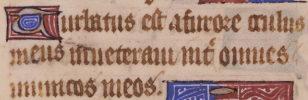 Turbatus est a furore oculus
meus inueteraui int̄ omnes
inimicos meos.